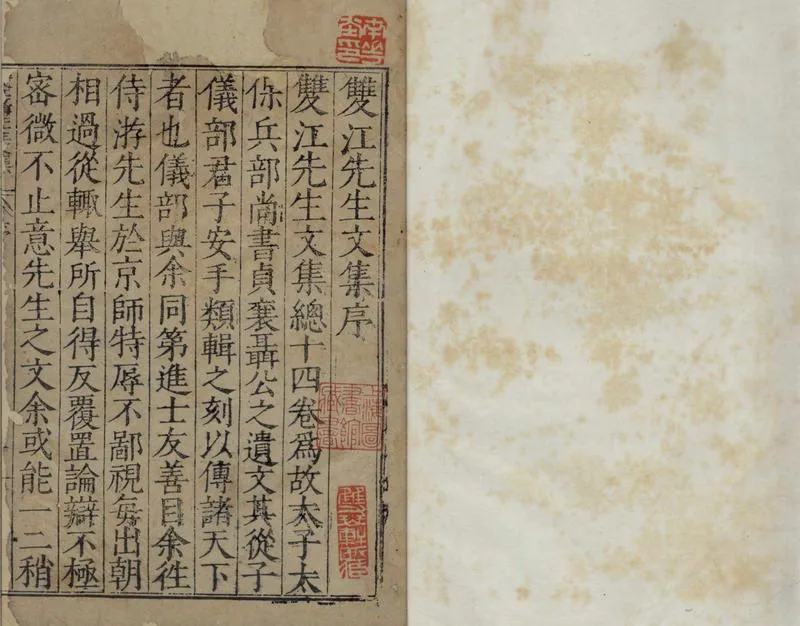 雙江先生文集序
雙江先生文集總十四卷爲故太子太
保兵部尚書貞襄聶公之遺文其從子
儀部君子安手類輯之刻以傳諸天下
者也儀部與余同第進士友善目余徃
侍游先生於京師特辱不鄙視每出朝
相過從輙舉所自得反覆置論辯不極
宻微不止意先生之文余或能一二稍
上海圖
書館
藏書